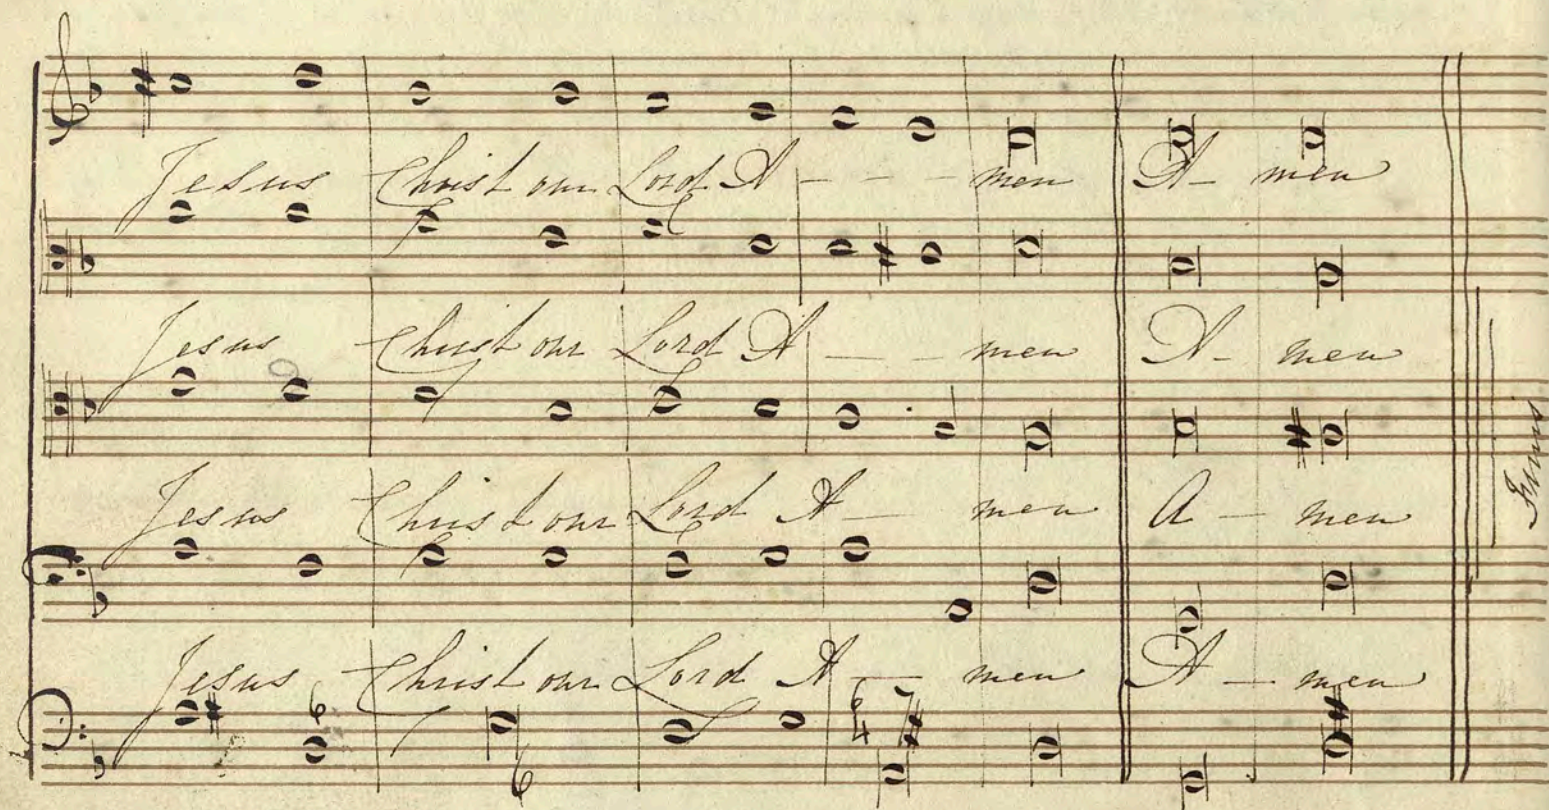 Jesus Christ our Lord A - - - men A - men
Jesus Christ our Lord A - - - men A - men
Jesus Christ our Lord A - men A - men
Jesus Christ our Lord A - men A - men
6 6 6 4 7
Finis